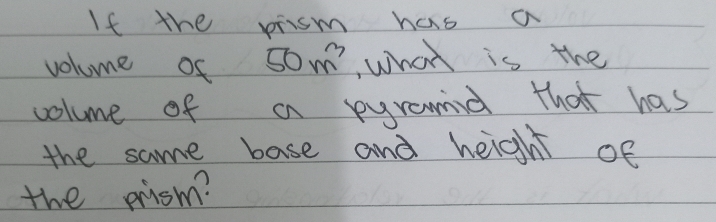 If the prism has a
volume of 50m³, what is the
volume of a pyramid that has
the same base and height of
the prism?